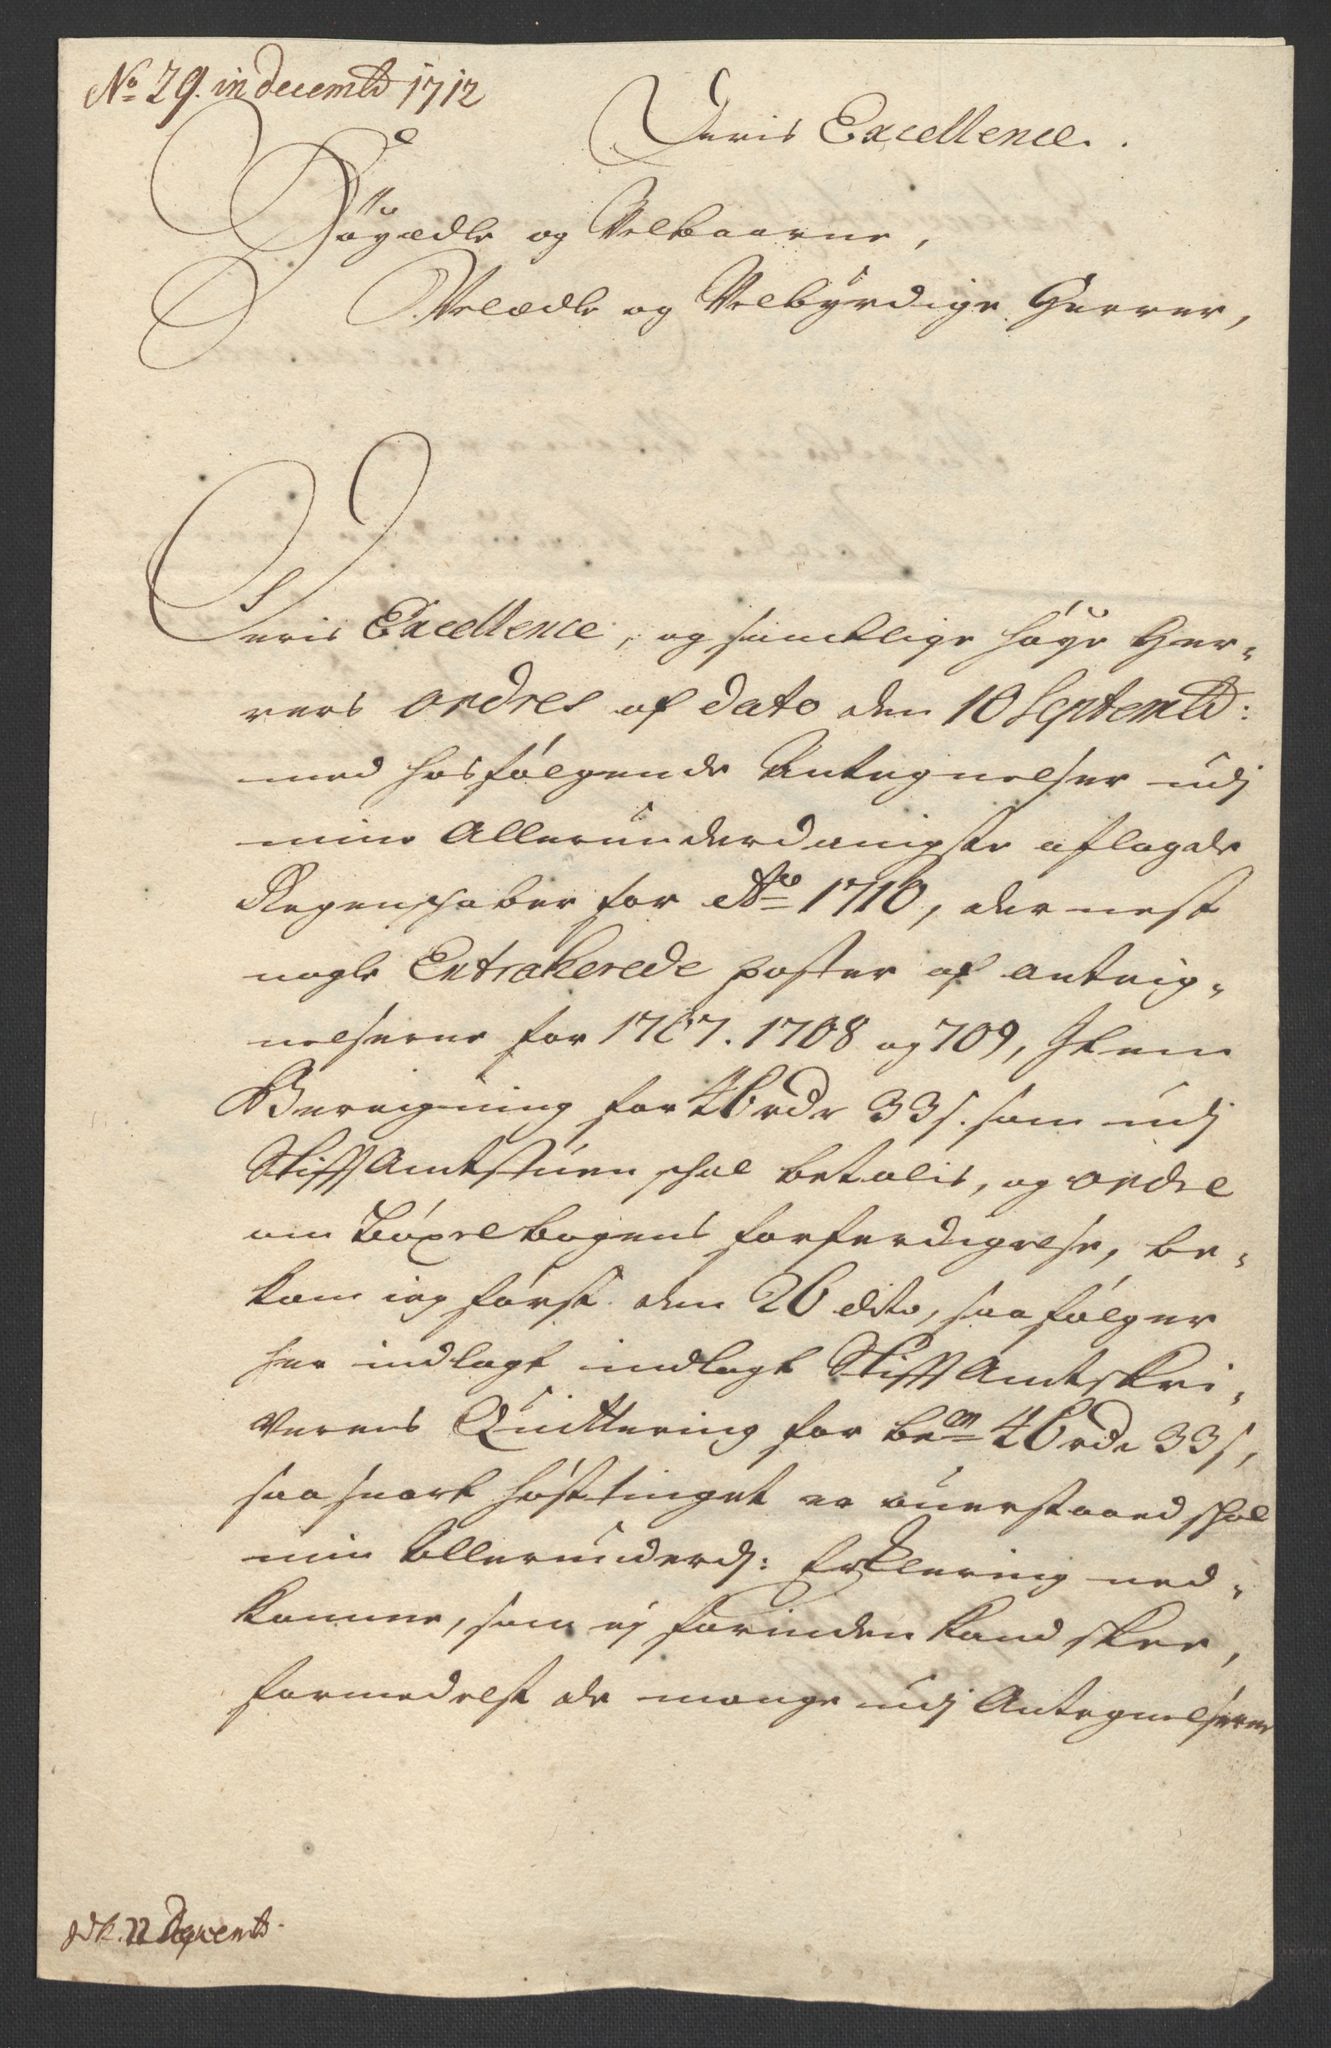 No 29. in decembr 1712
Deris Excellence.
Høyædle og Velbaarne,
Velædle og Velbyrdige Herrer,
Deris Excellence, og samtlige høye Her-
rers ordres af dato den 10 Septembr:
med hosfølgende Antegnelser udj
mine Allerunderdanigste aflagde
Regenskaber for Ao 1710, der nest
nogle Extraherede poster af anteig-
nelserne for 1707. 1708 og 709, Item
Bereigning for 46 rdr 33 s. som udj
Stifft Amtstuen skal betalis, og ordre
om Bøxelbogens forferdigelse, be-
kom ieg først den 26 dito, saa følger
her indlagt indlagt Stifft Amtskri-
verens Quittering for bem 46 rdr 33 s,
saa snart høsttinget er ouerstaaed skal
min Allerunderd: Erklering ned-
komme, som ej forinden kand skee,
formedelst de mange udj Antegnelserne
22 Decemb.